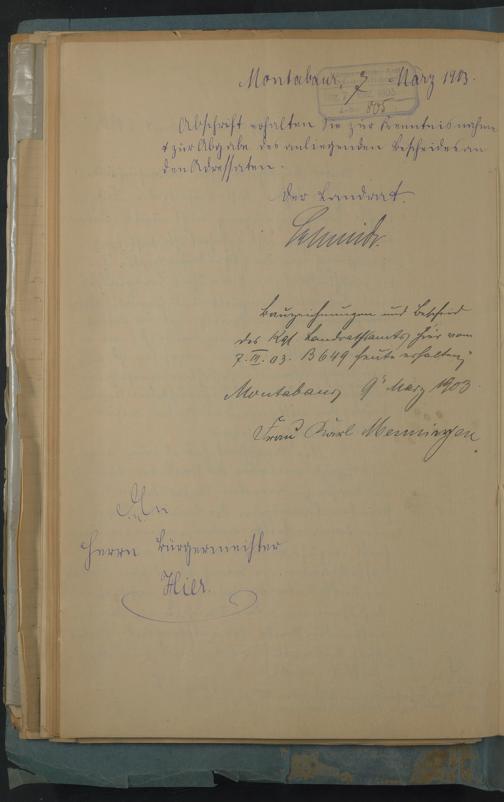 Montabaur, 7 März 1903.
805
Abschrift erhalten Sie zur Kenntnisnahme
& zur Abgabe des anliegenden Bescheides an
den Adressaten.
Der Landrat.
Schmidt.
Bauzeichnungen und Bescheid
des Kgl Landrathsamts hier vom
7. III. 03. B 649 heute erhalten,
Montabaur, 9 März 1903.
Frau Karl Menningen.
An
Herrn Bürgermeister
Hier.